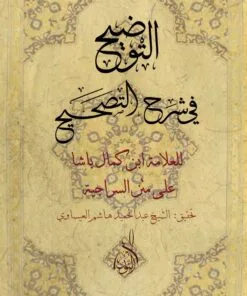 التوضيح
في شرح التصحيح
للعلامة ابن كمال باشا
على متن السراجية
تحقيق: الشيخ عبد الحميد هاشم العيساوي